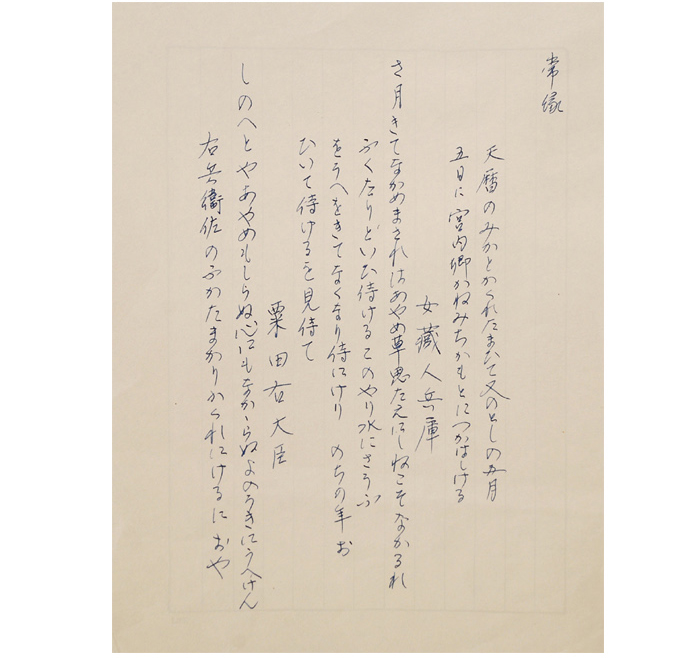 常縁
天暦のみかとかくれたまひて又のとしの五月
五日に宮内卿かねみちかもとにつかはしける
女藏人兵庫
さ月きてなかめまされはあやめ草思たえにしねこそなかるれ
ふくたりといひ侍けるこのやり水にさうふ
をうへをきてなくなり侍にけり のちの年 お
ひいて侍けるを見侍て
粟田右大臣
しのへとやあやめもしらぬ心にもなかゝらぬよのうきにうへけん
右兵衛佐のふかたまかりかくれにけるに おや